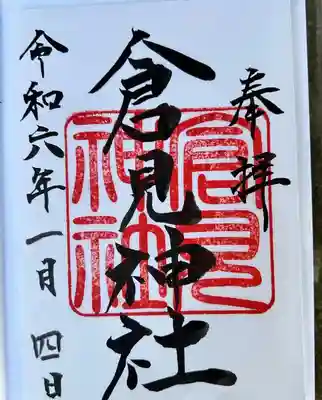 奉拝
倉見神社
倉見神社
令和六年一月四日